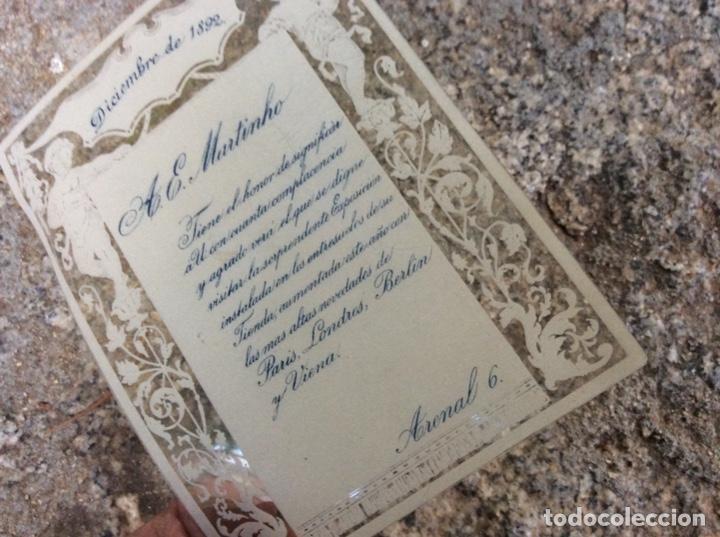 Diciembre de 1892.
A. E. Martinho
Tiene el honor de significar
a U. con cuanta complacencia
y agrado verá el que se digne
visitar la sorprendente Exposición
instalada en los entresuelos de su
Tienda, aumentada este año con
las mas altas novedades de
Paris, Londres, Berlin
y Viena.
Arenal 6.
todocoleccion